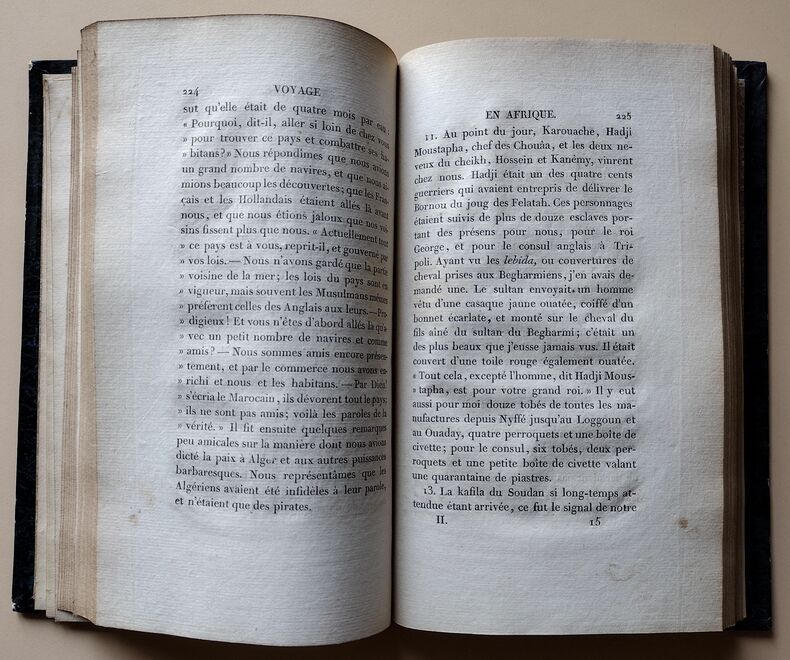 224 VOYAGE
sut qu'elle était de quatre mois par eau :
« Pourquoi, dit-il, aller si loin de chez vous
» pour trouver ce pays et combattre ses ha-
» bitans? » Nous répondîmes que nous avions
un grand nombre de navires, et que nous ai-
mions beaucoup les découvertes; que les Fran-
çais et les Hollandais étaient allés là avant
nous, et que nous étions jaloux que nos voi-
sins fissent plus que nous. « Actuellement tout
» ce pays est à vous, reprit-il, et gouverné par
» vos lois. — Nous n'avons gardé que la partie
» voisine de la mer; les lois du pays sont en
» vigueur, mais souvent les Musulmans mêmes
» préfèrent celles des Anglais aux leurs. — Pro-
» digieux! Et vous n'êtes d'abord allés là qu'a-
» vec un petit nombre de navires et comme
» amis? — Nous sommes amis encore présen-
» tement, et par le commerce nous avons en-
» richi et nous et les habitans. — Par Dieu!
» s'écria le Marocain, ils dévorent tout le pays;
» ils ne sont pas amis; voilà les paroles de la
» vérité. » Il fit ensuite quelques remarques
peu amicales sur la manière dont nous avions
dicté la paix à Alger et aux autres puissances
barbaresques. Nous représentâmes que les
Algériens avaient été infidèles à leur parole,
et n'étaient que des pirates.
EN AFRIQUE. 225
11. Au point du jour, Karouache, Hadji
Moustapha, chef des Chouâa, et les deux ne-
veux du cheikh, Hossein et Kanémy, vinrent
chez nous. Hadji était un des quatre cents
guerriers qui avaient entrepris de délivrer le
Bornou du joug des Felatah. Ces personnages
étaient suivis de plus de douze esclaves por-
tant des présens pour nous, pour le roi
George, et pour le consul anglais à Tri-
poli. Ayant vu les lebida, ou couvertures de
cheval prises aux Beghermiens, j'en avais de-
mandé une. Le sultan envoyait un homme
vêtu d'une casaque jaune ouatée, coiffé d'un
bonnet écarlate, et monté sur le cheval du
fils aîné du sultan du Begharmi; c'était un
des plus beaux que j'eusse jamais vus. Il était
couvert d'une toile rouge également ouatée.
« Tout cela, excepté l'homme, dit Hadji Mous-
» tapha, est pour votre grand roi. » Il y eut
aussi pour moi douze tobés de toutes les ma-
nufactures depuis Nyffé jusqu'au Loggoun et
au Ouaday, quatre perroquets et une boîte de
civette; pour le consul, six tobés, deux per-
roquets et une petite boîte de civette valant
une quarantaine de piastres.
13. La kafila du Soudan si long-temps at-
tendue étant arrivée, ce fut le signal de notre
II. 15